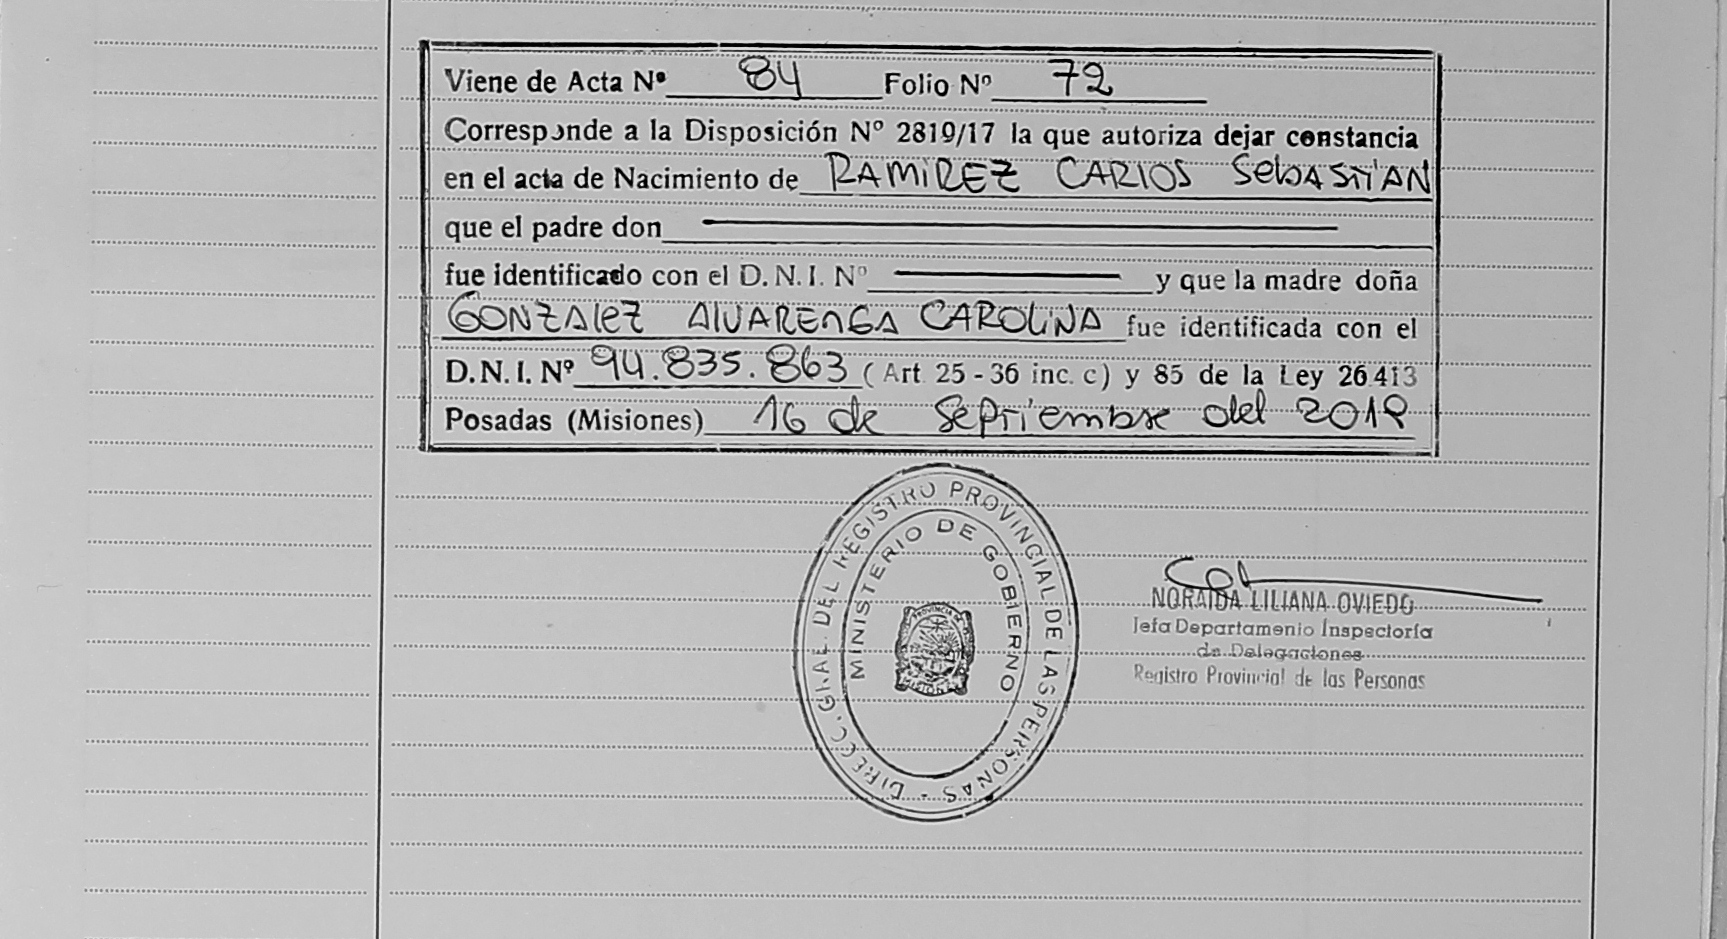 Viene de Acta Nº 84 Folio Nº 72
Corresponde a la Disposición Nº 2819/17 la que autoriza dejar constancia
en el acta de Nacimiento de RAMIREZ CARLOS SEbASTIAN
que el padre don
fue identificado con el D.N.I. Nº y que la madre doña
GONZALEZ ALVARENGA CAROLINA fue identificada con el
D.N.I. Nº 94.835.863 (Art. 25-36 inc. c) y 85 de la Ley 26413
Posadas (Misiones) 16 de Septiembre del 2019
DIRECC. GRAL. DEL REGISTRO PROVINCIAL DE LAS PERSONAS -
MINISTERIO DE GOBIERNO
PROVINCIA DE
MISIONES
NORAIDA LILIANA OVIEDO
Jefa Departamento Inspectoría
de Delegaciones
Registro Provincial de las Personas